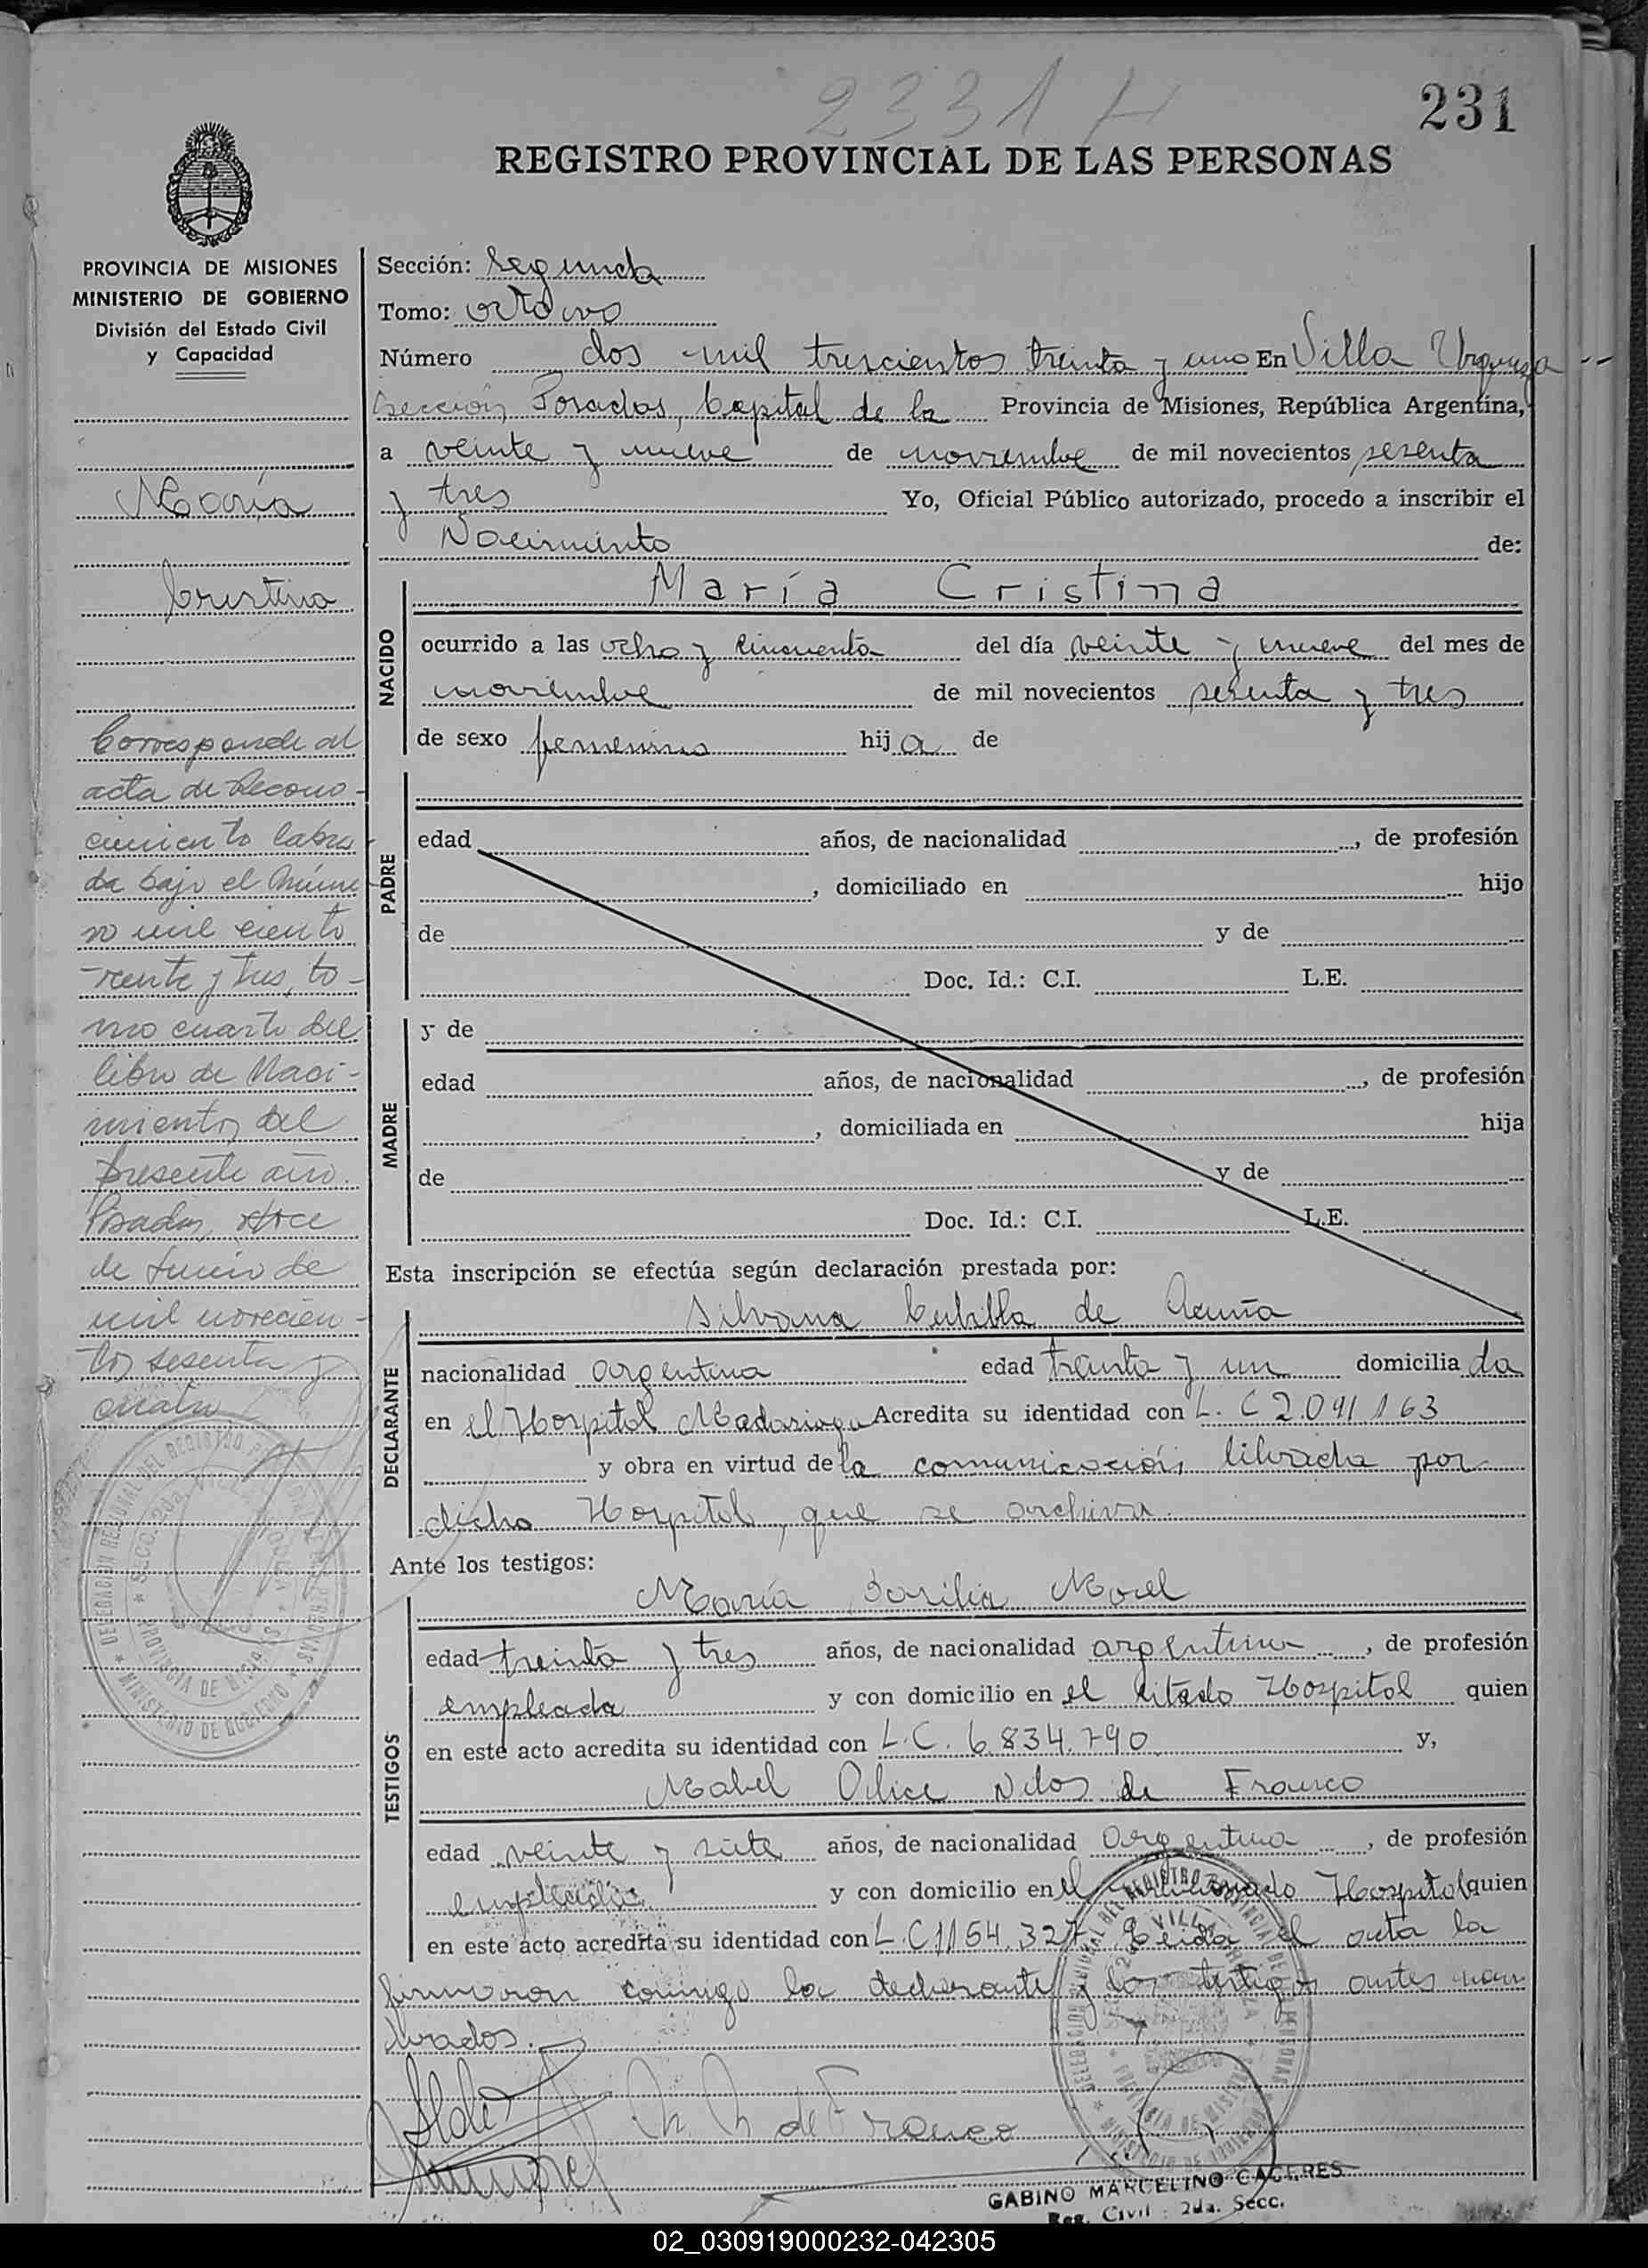 2331 H
231
REGISTRO PROVINCIAL DE LAS PERSONAS
PROVINCIA DE MISIONES
MINISTERIO DE GOBIERNO
División del Estado Civil
y Capacidad
María
Cristina
Corresponde al
acta de Recono-
cimiento labra-
da bajo el núme-
ro mil ciento
veinte y tres, to-
mo cuarto del
libro de Naci-
mientos del
presente año.
Posadas,
de Junio de
mil novecien-
tos sesenta y
cuatro
Sección: Segunda
Tomo: octavo
Número dos mil trescientos treinta y uno En Villa Urquiza --
Sección, Posadas, Capital de la Provincia de Misiones, República Argentina,
a veinte y nueve de noviembre de mil novecientos sesenta
y tres Yo, Oficial Público autorizado, procedo a inscribir el
Nacimiento de:
NACIDO
María Cristina
ocurrido a las ocho y cincuenta del día veinte y nueve del mes de
noviembre de mil novecientos sesenta y tres
de sexo femenino hija de
PADRE
edad años, de nacionalidad , de profesión
, domiciliado en hijo
de y de
Doc. Id.: C.I. L.E.
MADRE
y de
edad años, de nacionalidad , de profesión
, domiciliada en hija
de y de
Doc. Id.: C.I. L.E.
Esta inscripción se efectúa según declaración prestada por:
DECLARANTE
Silvana Cubilla de Acuña
nacionalidad argentina edad treinta y un domiciliada
en el Hospital Madariaga Acredita su identidad con L. C 2.091163
y obra en virtud de la comunicación librada por
dicho Hospital, que se archiva.
Ante los testigos:
TESTIGOS
María Morel
edad treinta y tres años, de nacionalidad argentina , de profesión
empleada y con domicilio en el citado Hospital quien
en este acto acredita su identidad con L.C. 6.834.790 y,
Mabel Alice de Franco
edad veinte y siete años, de nacionalidad Argentina , de profesión
empleada y con domicilio en el mencionado Hospital quien
en este acto acredita su identidad con L.C 1154.327. Leida el acta la
firmaron conmigo la declarante y los testigos antes nom
brados.
de Franco
GABINO MARCELINO CACERES
Reg. Civil : 2da. Secc.
02_030919000232-042305